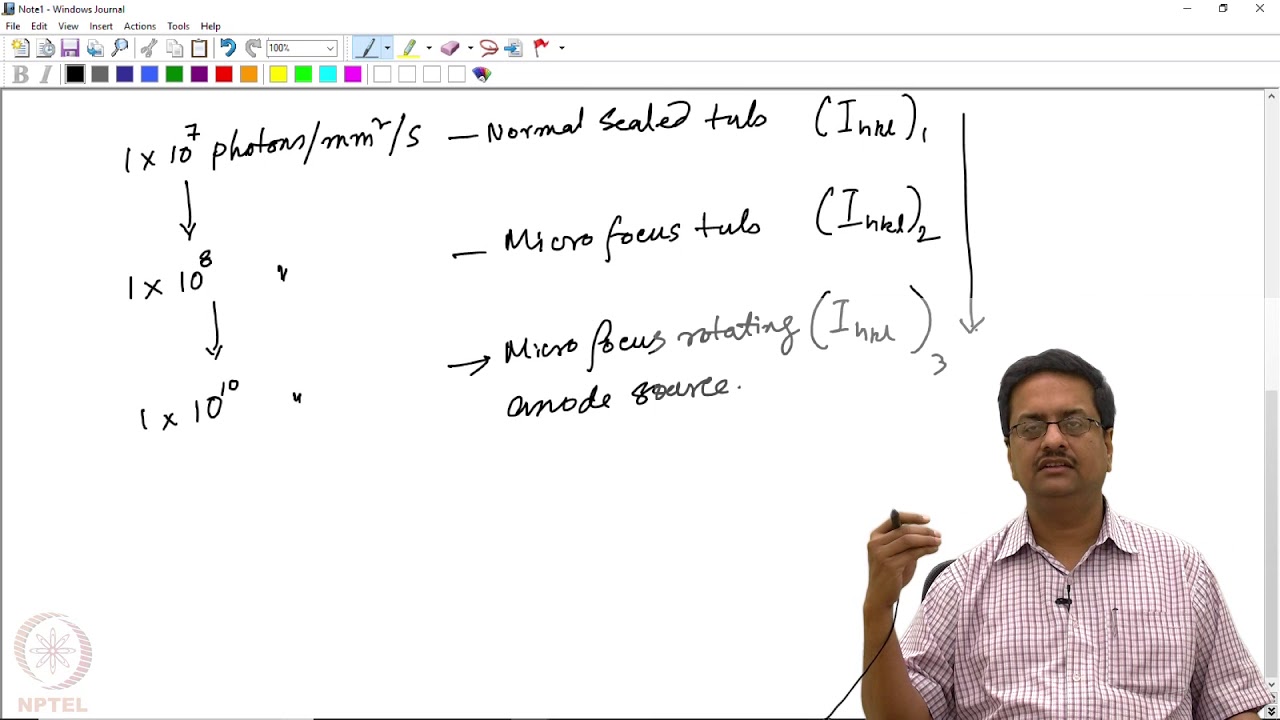 Note1 - Windows Journal
File Edit View Insert Actions Tools Help
100%
B I
1 x 10⁷ photons/mm²/s — Normal sealed tube (I_hkl)₁
1 x 10⁸ " — Micro focus tube (I_hkl)₂
1 x 10¹⁰ " → Micro focus rotating (I_hkl)₃
anode source.
NPTEL